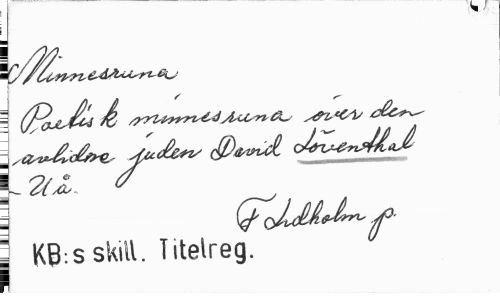 Minnesruna
Poetisk minnesruna över den
avlidne juden David Löventhal
U å.
F Lidholm p.
KB:s skill. Titelreg.